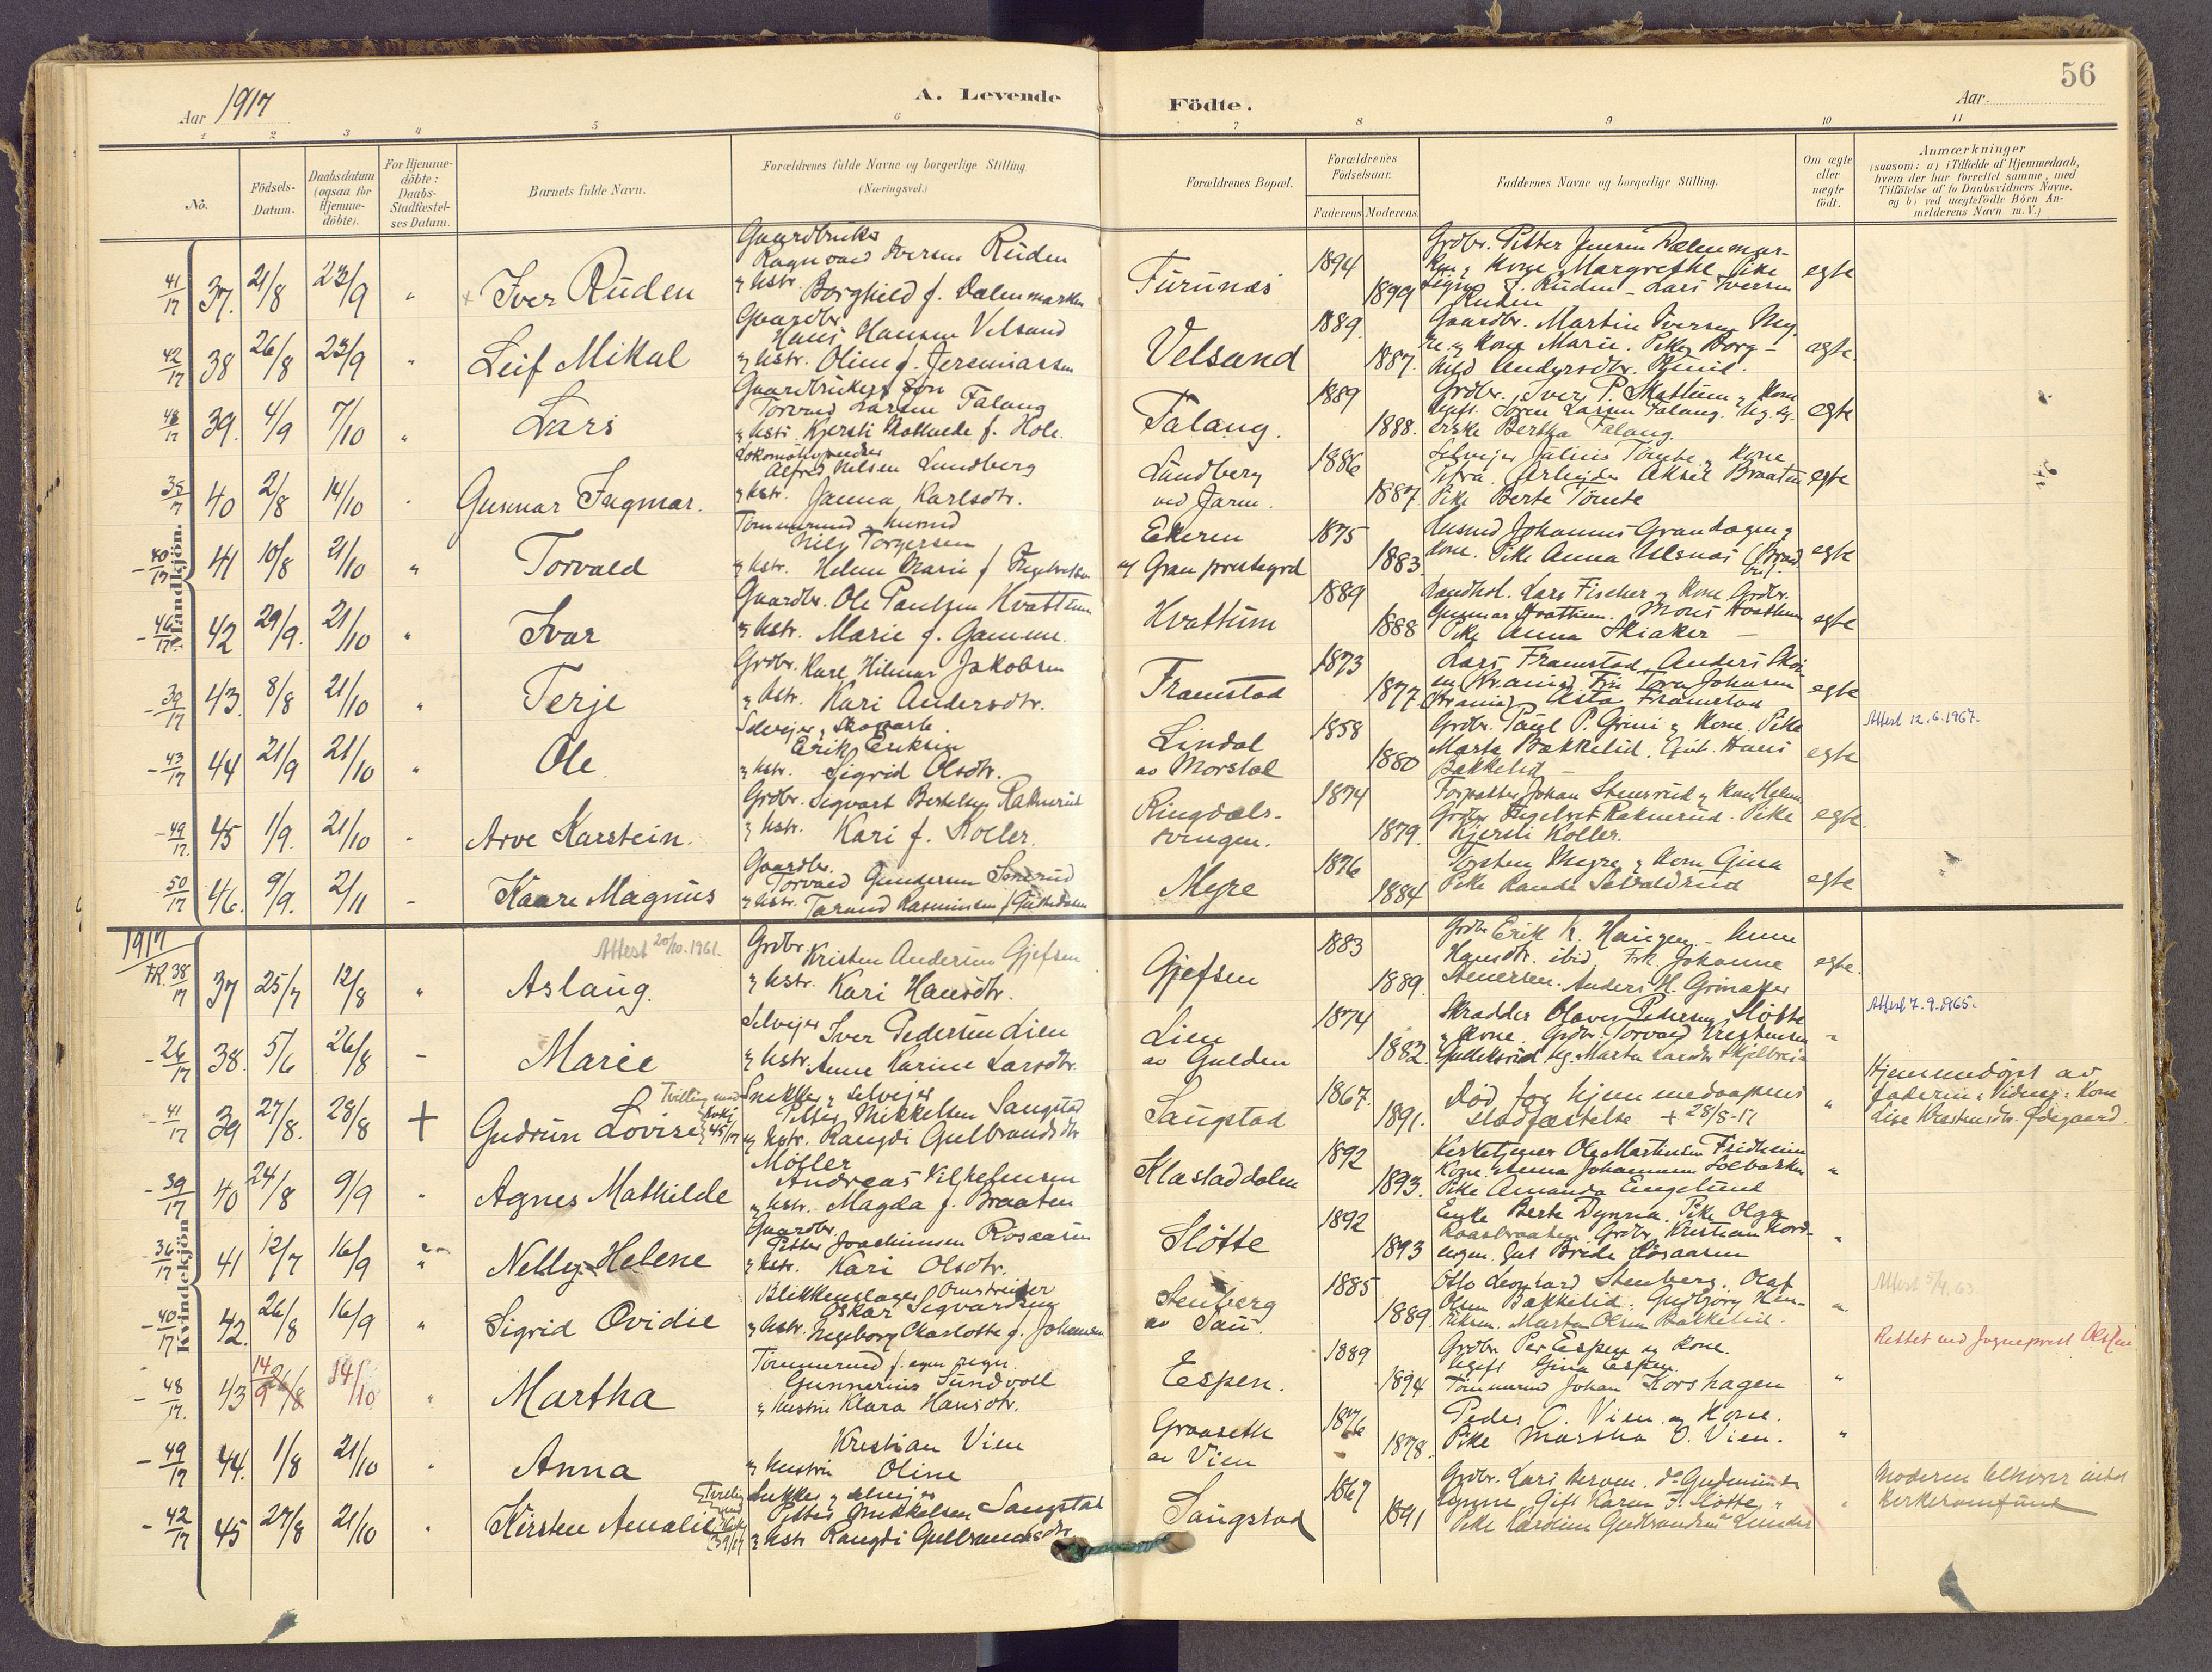 56
Aar 1917
A. Levende Födte.
Aar
1 2 3 4 5 6 7 8 9 10 11
No.
Födsels-Datum.
Daabsdatum (ogsaa for Hjemme-döbte).
For Hjemme-döbte: Daabs-Stadfæstel-ses Datum.
Barnets fulde Navn.
Forældrenes fulde Navne og borgerlige Stilling
(Næringsvei.)
Forældrenes Bopæl.
Forældrenes Födselsaar.
Faderens Moderens
Faddernes Navne og borgerlige Stilling.
Om ægte eller uægte födt.
Anmærkninger
(saasom: a) i Tilfælde af Hjemmedaab,
hvem der har forrettet samme, med
Tilföielse af to Daabsvidners Navne.
og b) ved uægtefödte Börn An-
melderens Navn m. V.)
Mandkjön.
41/17 37. 21/8 23/9 " Iver Ruden
Gaardbruker
Ragnvald Iversen Ruden
og hstr. Borghild f. Dalenmarken
Furunes 1894 1899
Grdbr. Petter Jensen Dalenmar-
ken og Kone Margrethe. Pike
Signe J. Ruden - Lars Iversen
Ruden
egte
42/17 38 26/8 23/9 " Leif Mikal
Gaardbr.
Hans Hansen Velsand
og hstr. Oline f. Jeremiassen
Velsand 1889. 1887.
Gaardbr. Martin Iversen My-
re og Kone Marie. Pike Borg-
hild Andersdtr.
egte.
39. 4/9 7/10 " Lars
Gaardbrukers Søn
Torvald Larsen Falang
og hstr. Kjersti f. Hole.
Falang. 1889 1888.
Grdbr. Iver P. Skattum og Kone
Ugift Søren Larsen Falang.
Bertha Falang.
egte
35/17 40 2/8 14/10 Gunnar Ingmar.
Alfred Nilsen Lundberg
og hstr. Janna Karlsdtr.
Lundberg
ved Jaren. 1886 1887.
Selvejer Julius Tomte og Kone
Petra. Arbejder Aksel Braaten
Pike Berte Tomte
egte
40/17 41 10/8 21/10 " Torvald
Tømmermand og husmd
Nils Torgersen
og hstr. Helene Marie f
Ekeren
Gran prestegrd 1875 1883
Husmd Johannes Grandagen og
Kone. Pike Anna Ulsnæs
egte
46/17 42 29/9. 21/10 " Ivar
Gaardbr. Ole Paulsen Hvattum
og hstr. Marie f. Gamme.
Hvattum 1889 1888
Landhdl. Lars Fischer og Kone Grdbr.
Gunnar Hvattum. Mons Hvattum
Pike Anna Skiaker -
egte
39/17 43. 8/8 21/10 " Terje
Grdbr. Karl Hilmar Jakobsen
og hstr. Kari Andersdtr.
Framstad 1873 1877
Lars Framstad Anders
Tora Johnsen
Asta Framstad
egte
43/17 44 21/9 21/10 " Ole
Selvejer og Skogarb.
Erik Eriksen
og hstr. Sigrid Olsdtr.
Lindal
av Morstal 1858 1880
Grdbr. Paul P. Grini og Kone. Pike
Marta Bakkelid. Gut. Hans
Bakkelid -
egte
Attest 12.6.1967.
49/17. 45 1/9. 21/10 - Arve Karstein.
Grdbr. Sigvart Bertelsen Raknerud
og hstr. Kari f. Koller.
Ringdals-
svingen. 1874 1879.
Forpakter Johan Stensrud og Kone Helene
Grdbr. Engebret Raknerud. Pike
Kjersti Koller.
egte.
50/17 46. 9/9. 2/11 - Kaare Magnus
Gaardbr.
Torvald Gundersen
og hstr.
Myre 1876 1884
Torsten Myre og Kone Gina
Pike Randi
egte
1917
Kvindekjön
38/17 37 25/7 12/8 " Aslaug.
Attest 20/10. 1961.
Grdbr. Kristen Andersen Gjefsen
og hstr. Kari Hansdtr.
Gjefsen 1883 1889.
Grdbr Erik K. Haugen - Anne
Hansdtr. ibid. Frk. Johanne
Stenersen. Anders H. Grinaker
egte.
26/17 38. 5/6 26/8 - Marie
Selvejer Iver Pedersen Lien
og hstr. Anne Karine Larsdtr.
Lien
av Gulden 1874 1882
Skrædder Olaves Pedersen Sløtte
og Kone. Grdbr. Torvald Kristensen
Ug. Marta Larsdtr
"
Attest 7.9.1965.
41/17 39 27/8. 28/8 + Gudrun Lovise
Tvilling med
45/17
Snekker og selvejer
Petter Mikkelsen Saugstad
og hstr. Rangdi Gulbrandsdtr
Saugstad 1867. 1891.
Død før hjemmedaapens
stadfæstelse + 28/8-17
"
Hjemmedøpt av
faderen. Vidner: Kone
Lise Kristensdtr. Ødegaard.
39/17 40 24/8 9/9 " Agnes Mathilde
Møller
Andreas Vilhelmsen
og hstr. Magda f. Braaten
Klæstaddalen 1892 1893.
Kirketjener Ole Martinsen Fridheim
Kone Anna Johannesen Solbakken
Pike Amanda Engelund
"
36/17 41 12/7 16/9 " Nelly Helene
Gaardbr.
Petter Joachimsen Rosaasen
og hstr. Kari Olsdtr.
Sløtte 1892 1893
Enke Berte Dynna. Pike Olga
Grdbr. Kristian Nord-
engen. Gut Bride Rosaasen
"
40/17 42. 26/8 16/9 " Sigrid Ovidie
Blikkenslager
Oskar Sigvardsen
og hstr. Ingeborg Charlotte f. Johansen
Stenberg
av Sau. 1885 1889
Otto Leonhard Stenberg. Olaf
Olsen Bakkelid. Gudbjørg Hen-
riksen. Marta Olsen Bakkelid.
"
Attest 5/4. 63
48/17. 43 26/8 14/9 14/10 " Martha
Tømmermand f. egen regn.
Gunnerius Sundvoll
og hustru Klara Hansdtr.
Espen. 1889 1894
Grdbr Per Espen og Kone.
Ugift Gina Espen.
Tømmermd Johan Korshagen
"
Rettet ved Sogneprest
49/17 44. 1/8 21/10 " Anna
Kristian Vien
og hustru Oline
Graaseth
av Vien 1876 1878.
Peder O. Vien og Kone.
Pike Martha O. Vien.
"
42/17 45 27/8 21/10 " Kirsten Amalie
Tvilling med
39/17
Snekker og selvejer
Petter Mikkelsen Saugstad
og hstr Rangdi Gulbrandsdtr.
Saugstad 1867 1891
Grdbr. Lars
Gift Karen F. Sløtte
Pike Karoline Gulbrandsen Lunder
"
Moderen tilhører intet
kirkesamfund